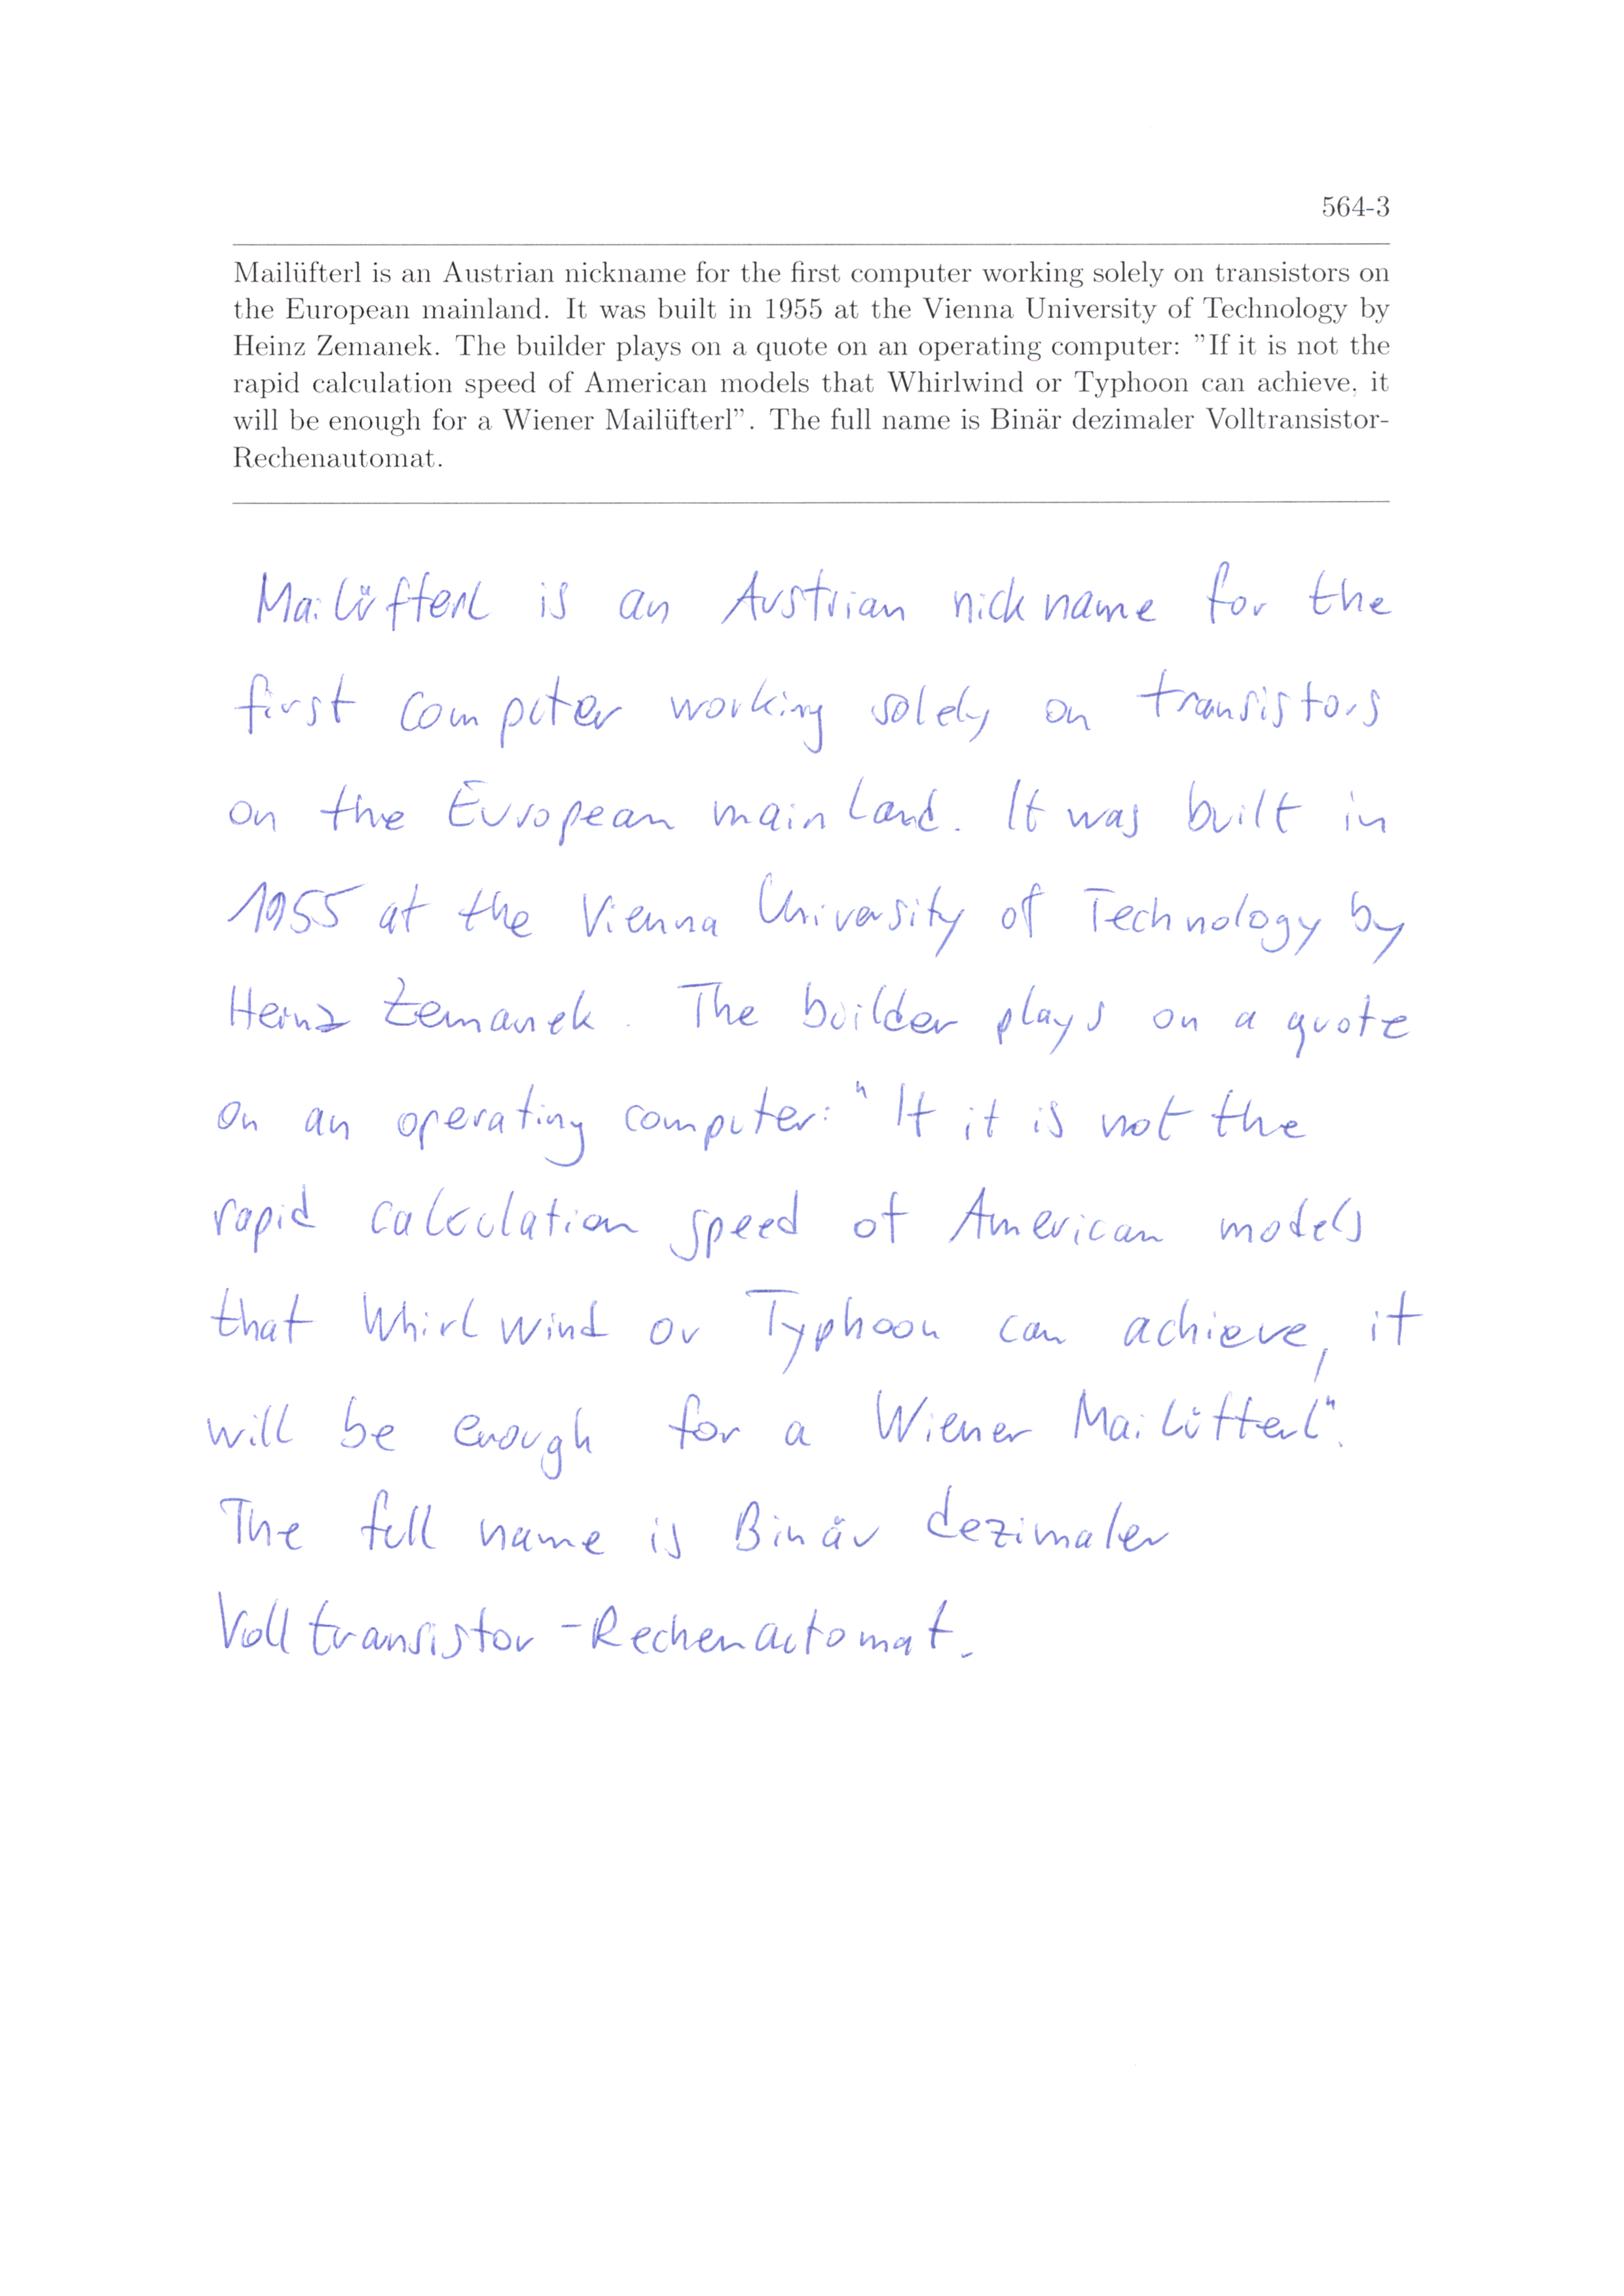 564-3
Mailüfterl is an Austrian nickname for the first computer working solely on transistors on
the European mainland. It was built in 1955 at the Vienna University of Technology by
Heinz Zemanek. The builder plays on a quote on an operating computer: ”If it is not the
rapid calculation speed of American models that Whirlwind or Typhoon can achieve, it
will be enough for a Wiener Mailüfterl”. The full name is Binär dezimaler Volltransistor-
Rechenautomat.
Mailüfterl is an Austrian nickname for the
first computer working solely on transistors
on the European mainland. It was built in
1955 at the Vienna University of Technology by
Heinz Zemanek. The builder plays on a quote
on an operating computer: "If it is not the
rapid calculation speed of American models
that Whirlwind or Typhoon can achieve, it
will be enough for a Wiener Mailüfterl".
The full name is Binär dezimaler
Volltransistor-Rechenautomat.